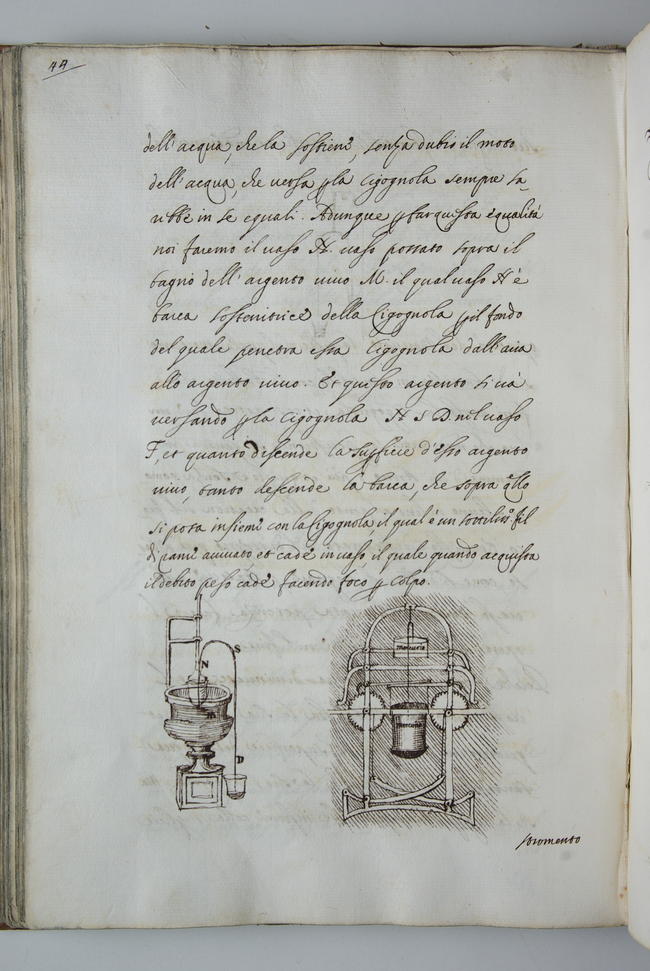 44
dell'acqua, che la sostiene, senza dubio il moto
dell'acqua, che versa p la cigognola sempre sa_
rebbe in se equali. Adunque p far questa equalità
noi faremo il vaso N. vaso possato sopra il
bagno dell'argento vivo M. il qual vaso N è
barca sostenitrice della Cigognola p il fondo
del quale penetra essa Cigognola dall'aria
allo argento vivo. Et questo argento si và
versando p la cigognola N S D. nel vaso
F, et quanto discende la supficie d'esso argento
vivo, tanto descende la barca, che sopra q̃llo
si posa insieme con la Cigognola il qual è un sottiliss.º fil
di rame avvuato et cade in vaso, il quale quando acquista
il debito peso cade facendo foco p colpo.
N
S
M
D
mercurio
mercurio
stromento